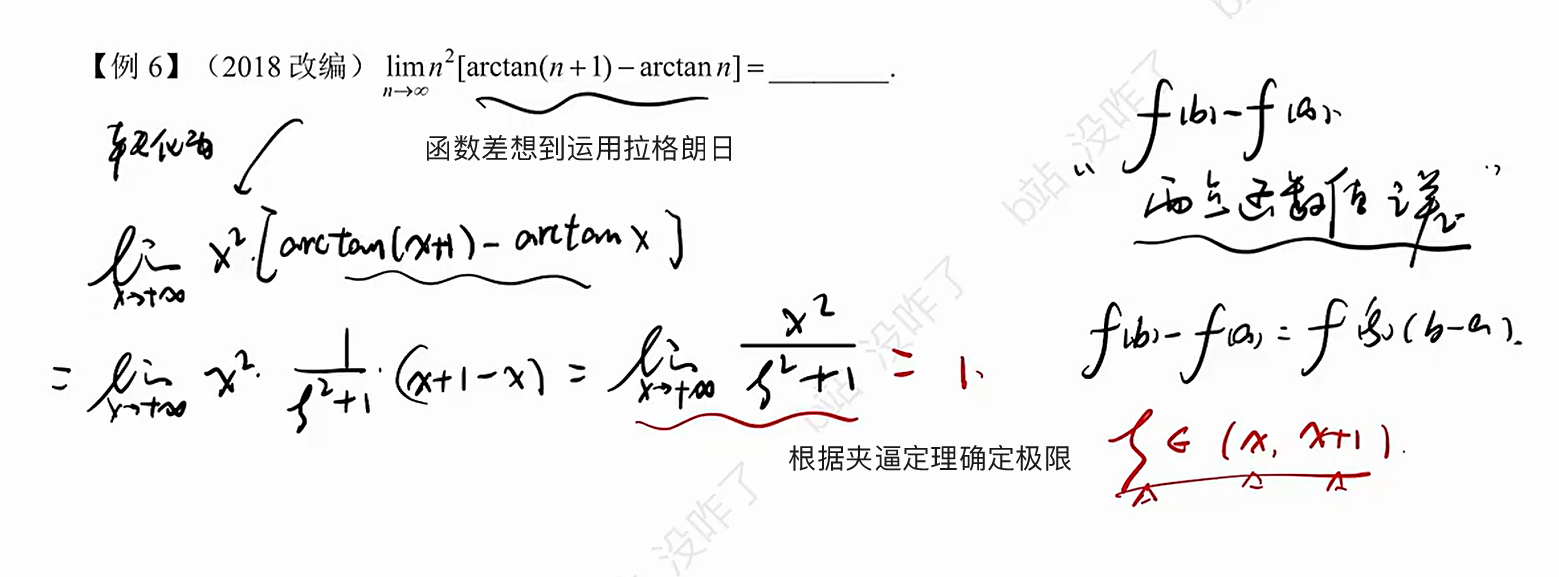 【例 6】(2018 改编) lim n→∞ n²[arctan(n+1)−arctan n]=________.
函数差想到运用拉格朗日
转化为
lim x→+∞ x²·[arctan(x+1) − arctan x]
= lim x→+∞ x²· 1/(ξ²+1) ·(x+1−x) = lim x→+∞ x²/(ξ²+1) = 1.
根据夹逼定理确定极限
f(b)−f(a).
“两点函数值之差”
f(b)−f(a) = f'(ξ)(b−a).
ξ∈(x, x+1).
b站 没咋了
b站 没咋了
没咋了